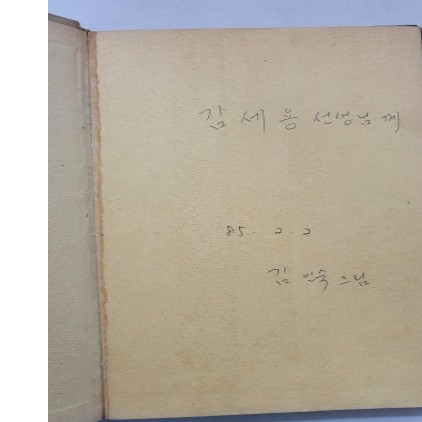 김세용 선생님께
85. 2. 2
김인숙 드림